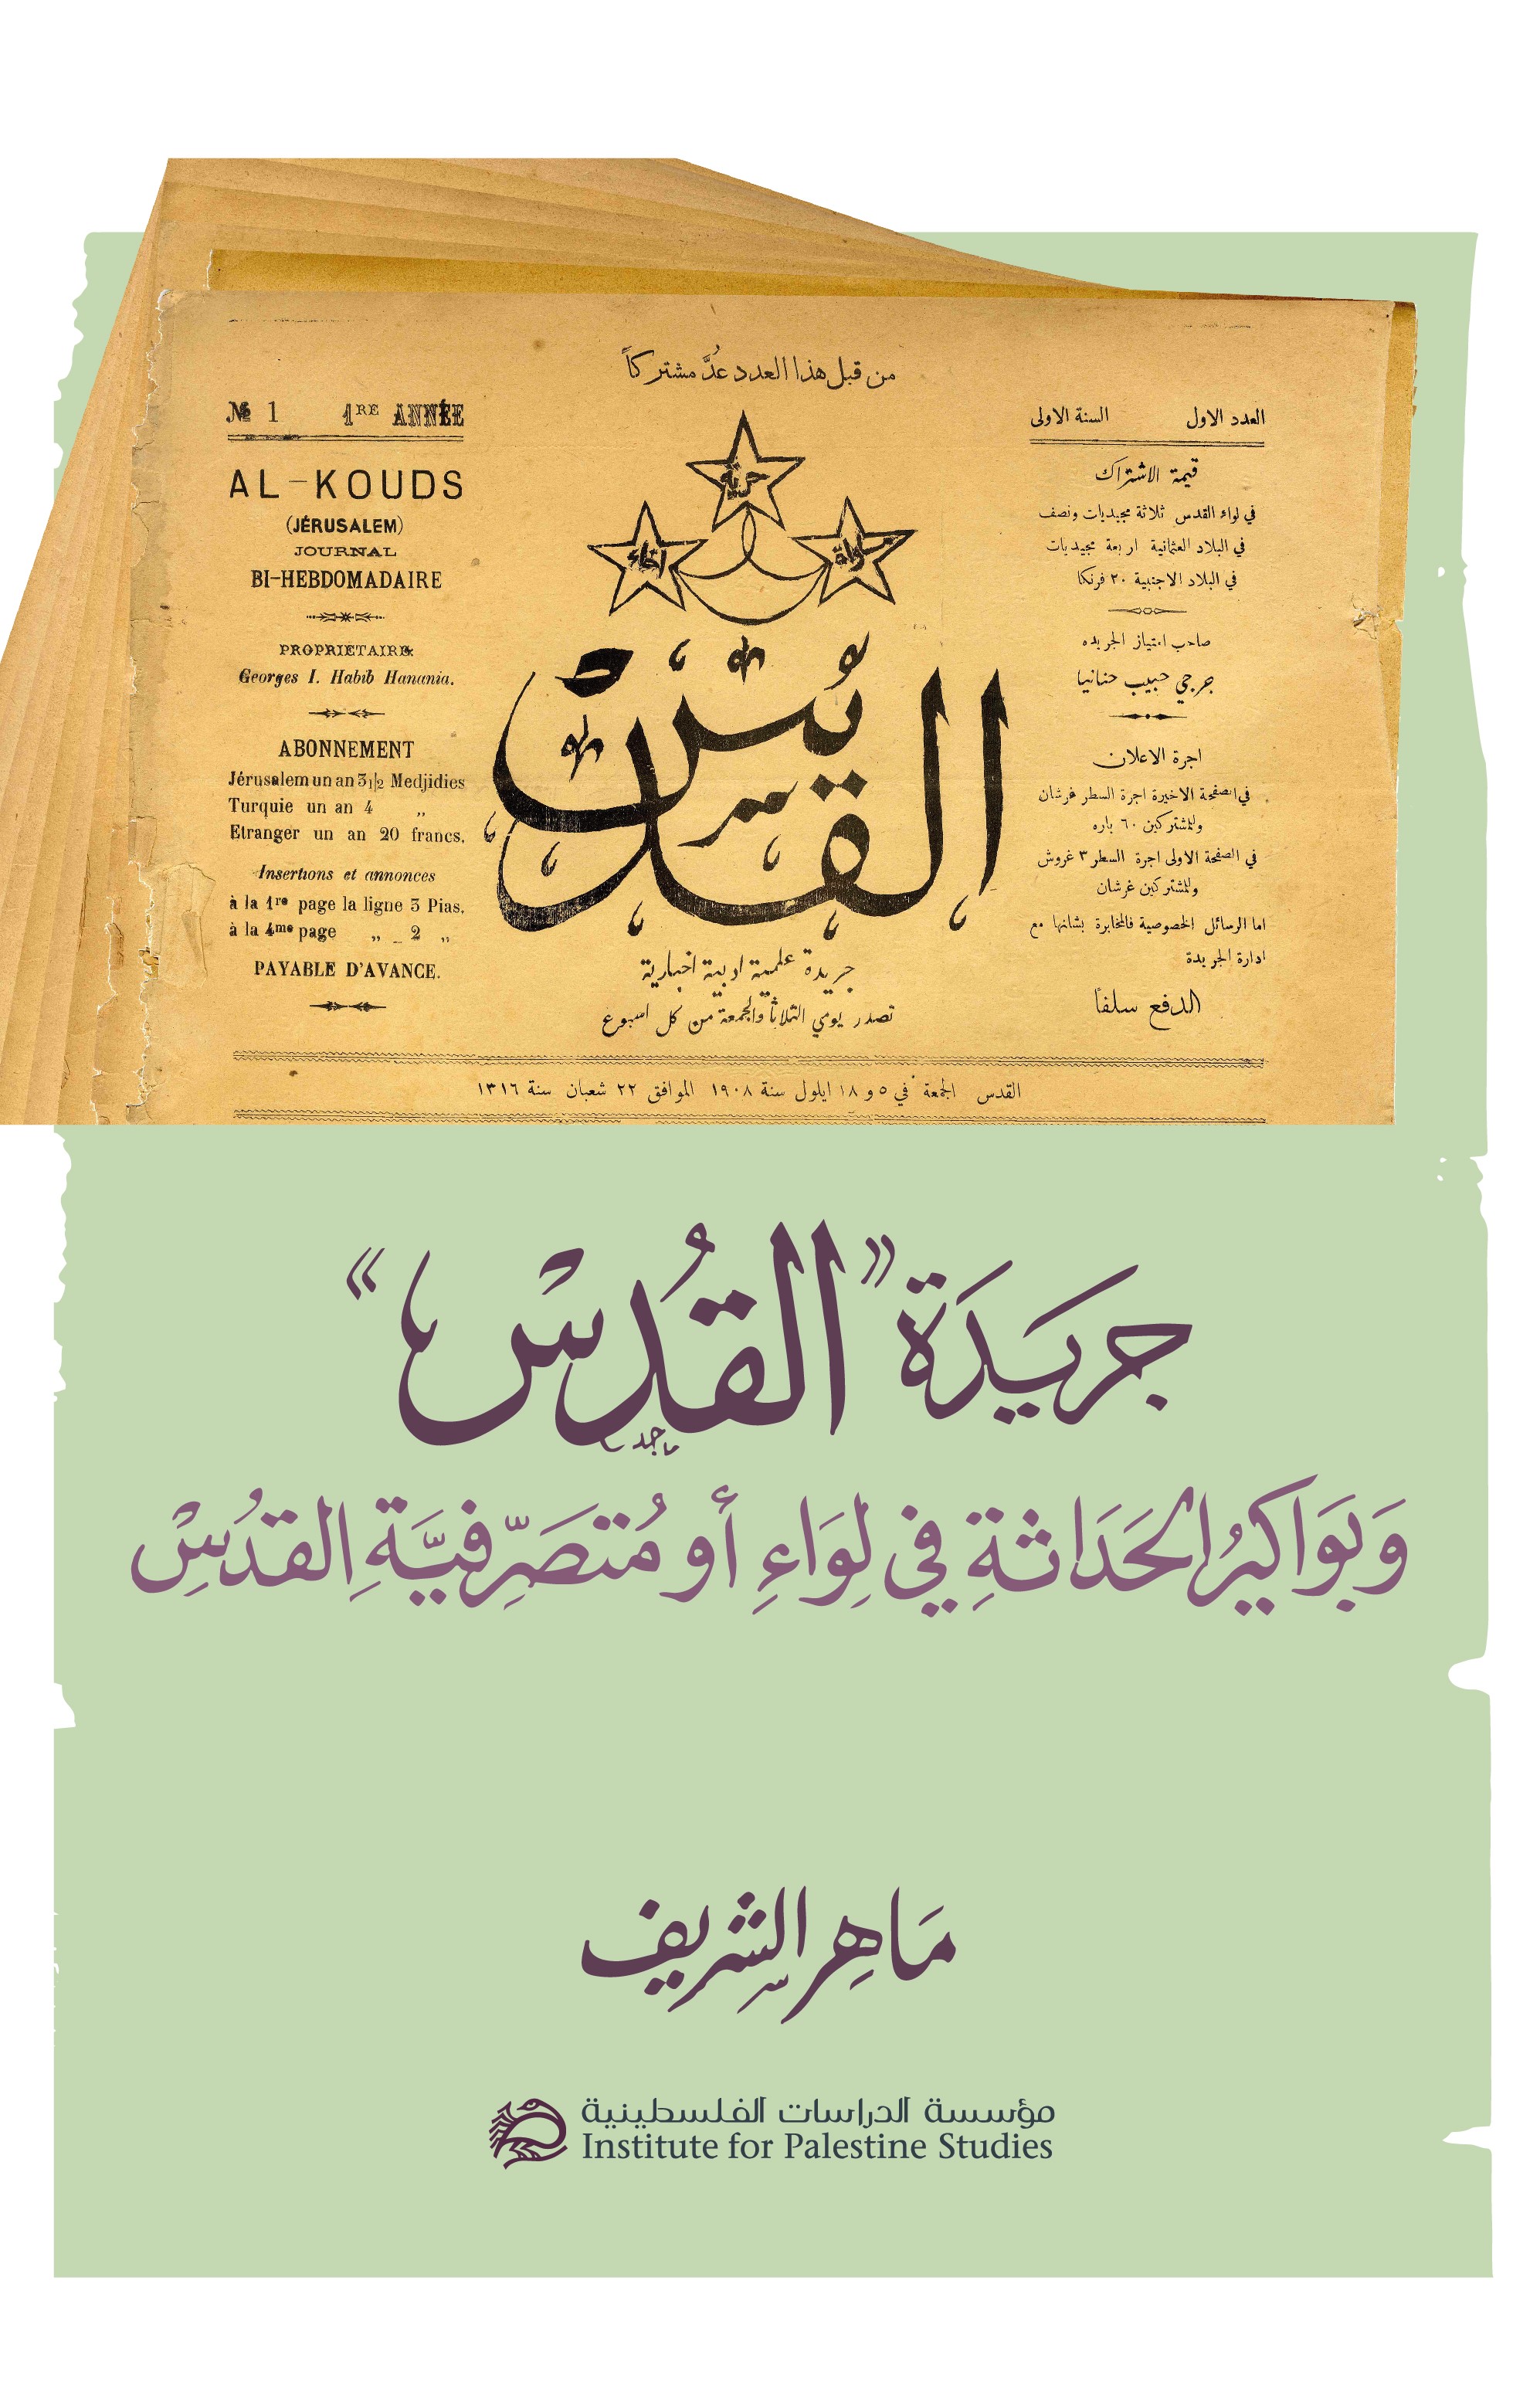 من قبل هذا العدد عُدَّ مشتركاً
العدد الاول السنة الاولى
قيمة الاشتراك
في لواء القدس ثلاثة مجيديات ونصف
في البلاد العثمانية اربعة مجيديات
في البلاد الاجنبية ٢٠ فرنكا
صاحب امتياز الجريده
جرجي حبيب حنانيا
اجرة الاعلان
في الصفحة الاخيرة اجرة السطر غرشان
وللمشتركين ٦٠ باره
في الصفحة الاولى اجرة السطر ٣ غروش
وللمشتركين غرشان
اما الرسائل الخصوصية فالمخابرة بشانها مع
ادارة الجريدة
الدفع سلفا
حرية
مساواة
اخاء
القدس
جريدة علمية ادبية اخبارية
تصدر يومي الثلاثا والجمعة من كل اسبوع
№ 1 1RE ANNÉE
AL-KOUDS
(JÉRUSALEM)
JOURNAL
BI-HEBDOMADAIRE
PROPRIÉTAIRE
Georges I. Habib Hanania.
ABONNEMENT
Jérusalem un an 3 1/2 Medjidies
Turquie un an 4 „
Etranger un an 20 francs.
Insertions et annonces
à la 1re page la ligne 3 Pias.
à la 4me page „ 2 „
PAYABLE D'AVANCE.
القدس الجمعة في ٥ و ١٨ ايلول سنة ١٩٠٨ الموافق ٢٢ شعبان سنة ١٣١٦
جريَدَة "القُدْسْ"
وَبَوَاكيرُ الحَدَاثةِ في لِوَاءِ أو مُتصَرِّفيَّةِ القدُسِْ
مَاهِر الشِريف
مؤسسة الدراسات الفلسطينية
Institute for Palestine Studies